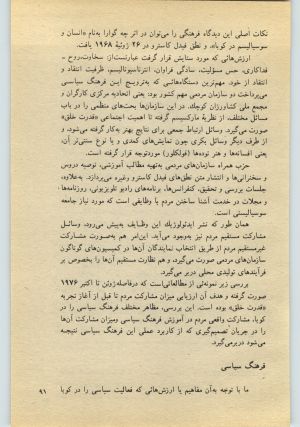 نکات اصلی این دیدگاه فرهنگی را می‌توان در اثر چه گوارا به‌نام «انسان و
سوسیالیسم در کوبا»، و نطق فیدل کاسترو در ۲۶ ژوئیهٔ ۱۹۶۸ یافت.
ارزش‌هائی که مورد ستایش قرار گرفت عبارتست‌از: سخاوت، روح ـ
فداکاری، حس مسؤلیت، سادگی فراوان، انترناسیونالیسم، ظرفیت انتقاد و
انتقاد از خود. مهم‌ترین دستگاه‌هائی که به‌ترویج این فرهنگ سیاسی
می‌پرداخت دو سازمان مردمی مهم کشور بود: یعنی اتحادیه مرکزی کارگران و
مجمع ملی کشاورزان کوچک. در این سازمان‌ها بحث‌های منظمی را در باب
مسائل مختلف، از نظریهٔ مارکسیسم گرفته تا اهمیت اجتماعی «قدرت خلق»
صورت می‌گیرد. وسائل ارتباط جمعی برای نتایج بهتر به‌کار گرفته می‌شود، و
از طرف دیگر وسائل بکری چون نمایش‌های کمدی و یا نوع سنتی‌تر آن،
یعنی افسانه‌ها و هنر توده‌ها (فولکلور) موردتوجه قرار گرفته است.
حزب همراه سازمان‌های مردمی به‌تهیه مطالب آموزشی، توصیه دروس
و سخنرانی‌ها و انتشار متن نطق‌های فیدل کاسترو وغیره می‌پردازد. به‌علاوه،
جلسات بررسی و تحقیق، کنفرانس‌ها، برنامه‌های رادیو تلویزیونی، روزنامه‌ها ـ
و مجلات در خدمت آشنا ساختن مردم با وظایفی است که مورد نیاز جامعه
سوسیالیستی است.
همان طور که نشر ایدئولوژیک این وظایف به‌پیش می‌رود، وسائل
مشارکت مستقیم مردم نیز به‌وجود می‌آید. این‌امر هم به‌صورت مشارکت
غیرمستقیم مردم از طریق انتخاب نمایندگان آن‌ها در کمیسیون‌های گوناگون
سازمان‌های مردمی صورت می‌گیرد، و هم نظارت مستقیم آن‌ها را بخصوص بر
فرآیندهای تولیدی محلی دربر می‌گیرد.
بررسی زیر نمونه‌ئی از مطالعاتی‌است که درفاصلهٔ ژوئن تا اکتبر ۱۹۷۶
صورت گرفته و هدف آن ارزیابی میزان مشارکت مردم تا قبل از آغاز تجربه
«قدرت خلق» بوده است. این بررسی، مظاهر مختلف فرهنگ سیاسی را در
کوبا، مشارکت واقعی مردم در آموزش فرهنگ سیاسی ومیزان مشارکت آن‌ها
را در جریان تصمیم‌گیری که از کاربرد عملی این فرهنگ سیاسی نتیجه
می‌شود دربرمی‌گیرد.
فرهنگ سیاسی
ما با توجه به‌آن مفاهیم یا ارزش‌هائی که فعالیت سیاسی را در کوبا
۹۱